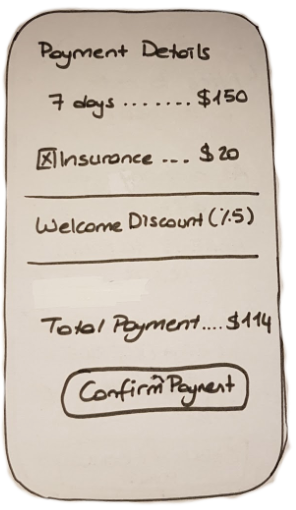 Payment Details
7 days ....... $150
☒ Insurance --- $20
Welcome Discount (%5)
Total Payment.... $114
Confirm Payment